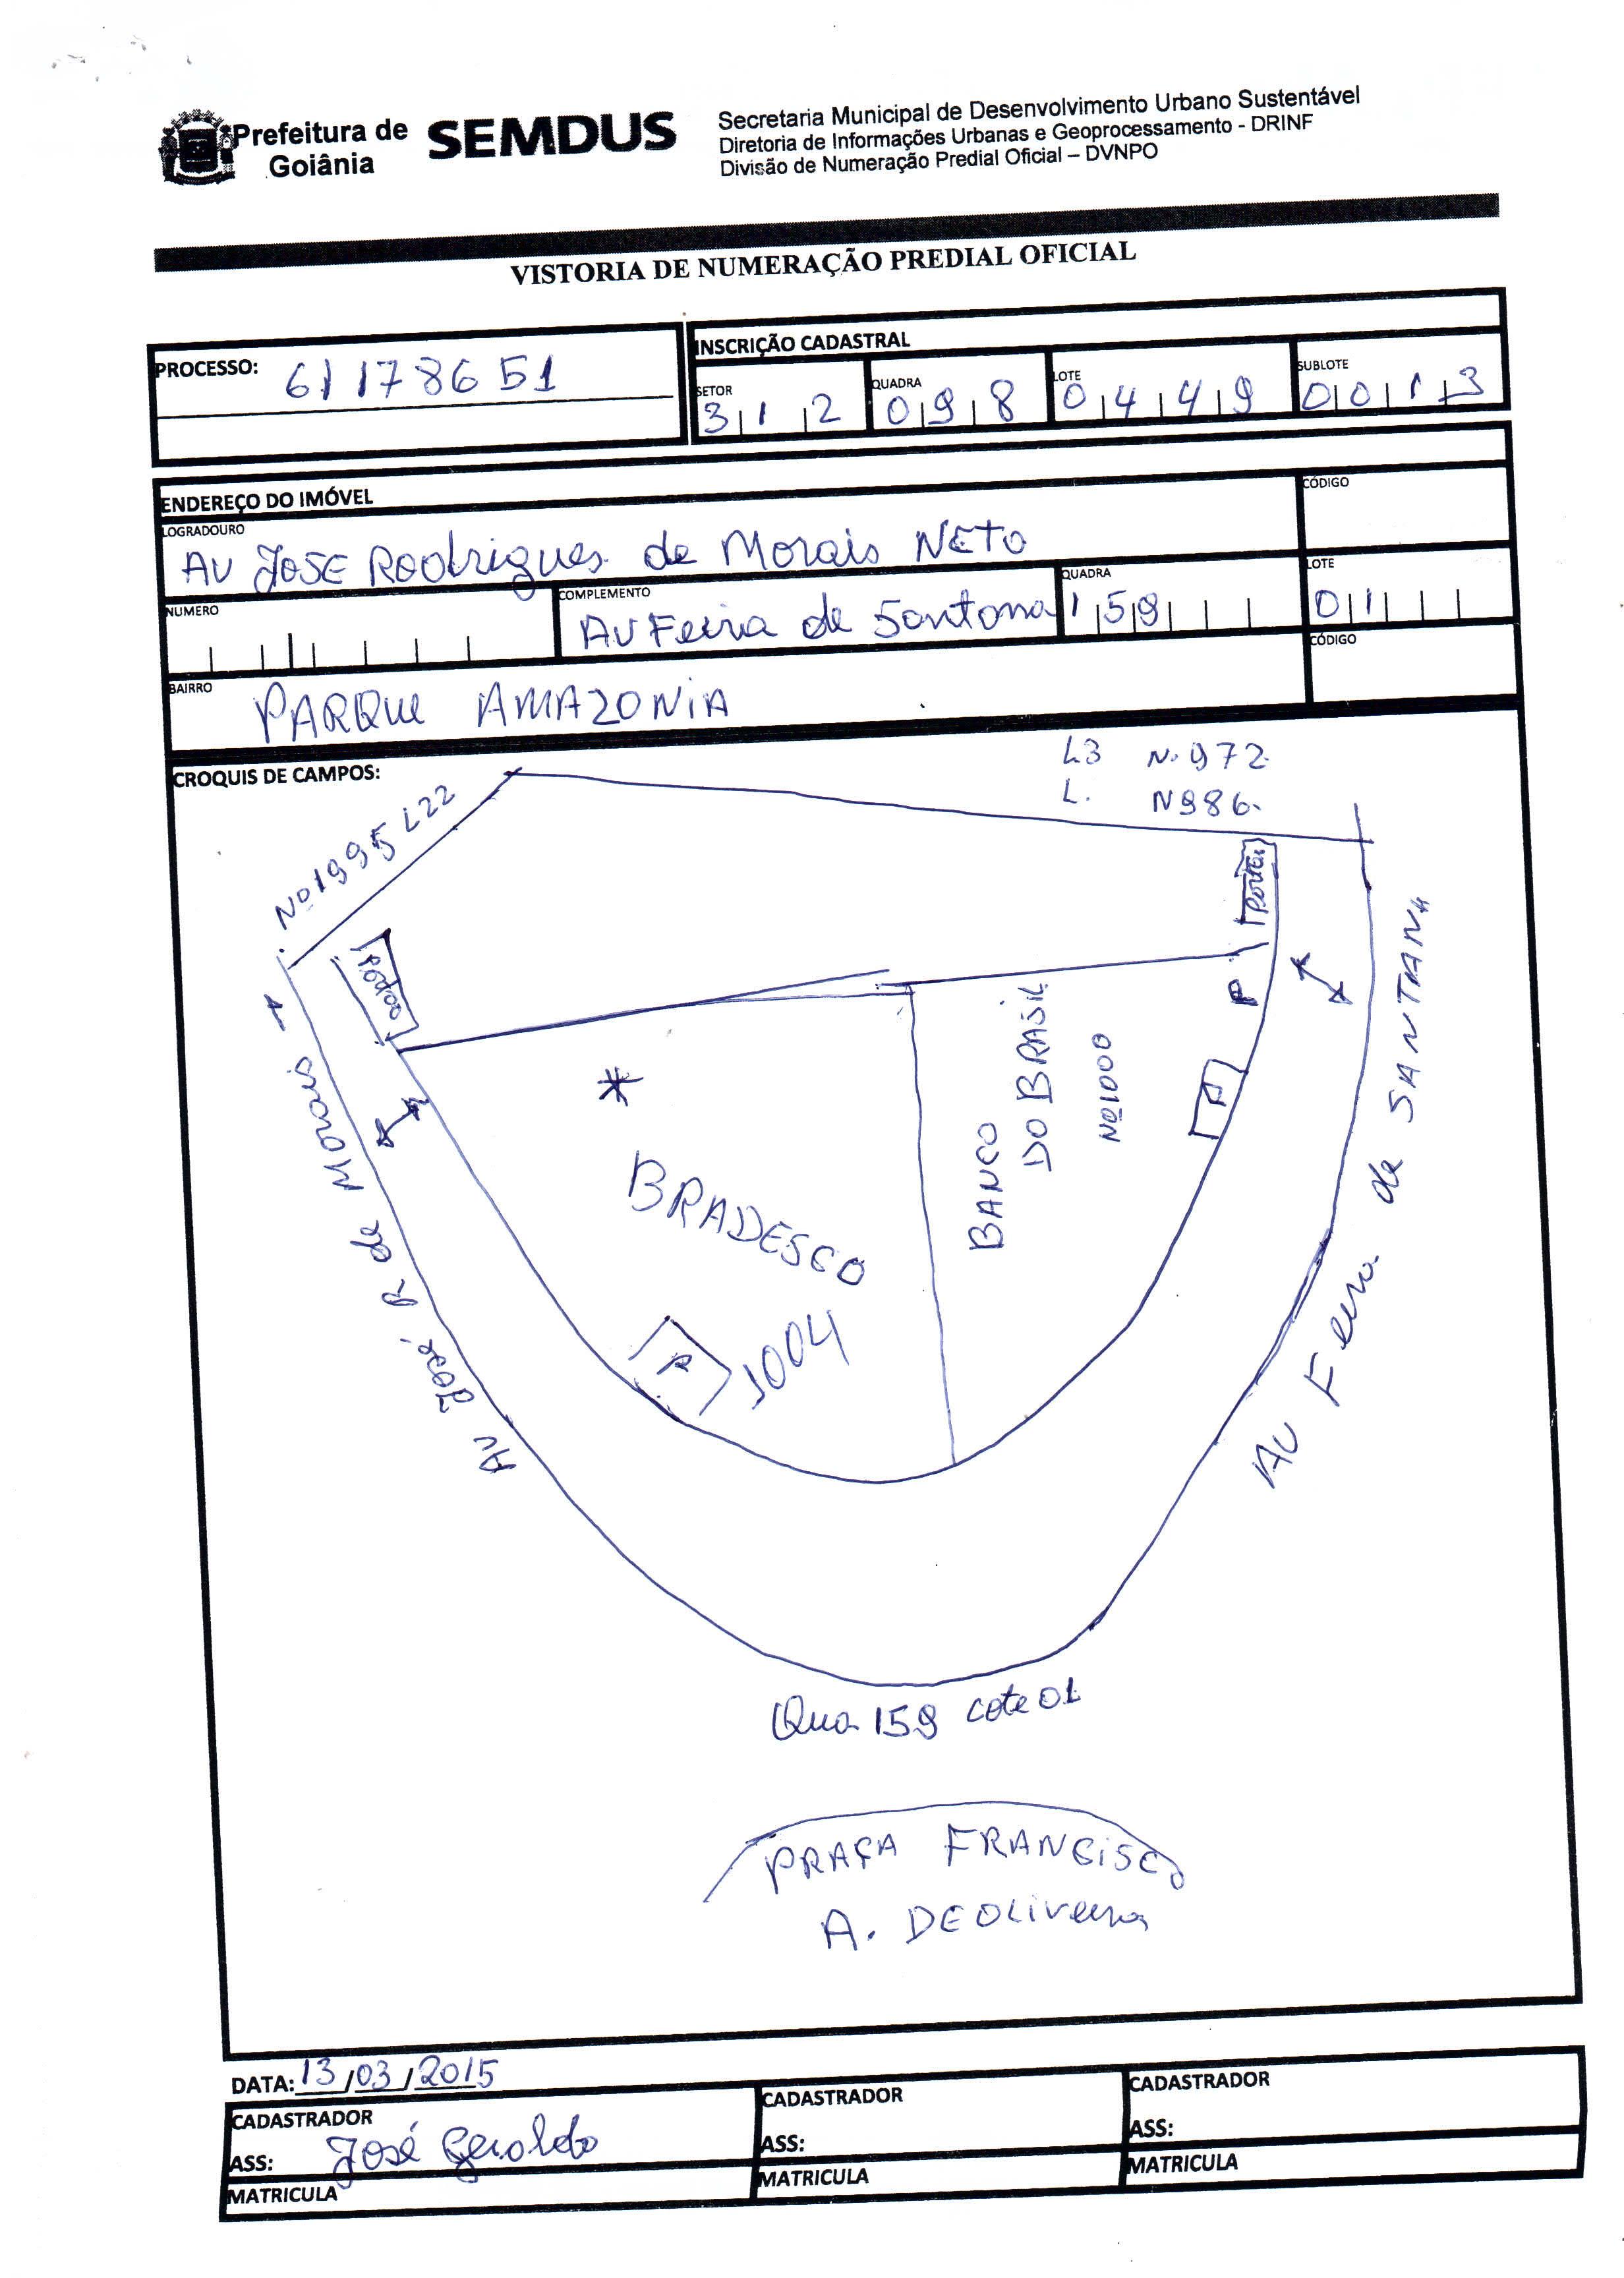 Prefeitura de
Goiânia
SEMDUS
Secretaria Municipal de Desenvolvimento Urbano Sustentável
Diretoria de Informações Urbanas e Geoprocessamento - DRINF
Divisão de Numeração Predial Oficial – DVNPO
VISTORIA DE NUMERAÇÃO PREDIAL OFICIAL
PROCESSO: 61178651
INSCRIÇÃO CADASTRAL
SETOR 312 QUADRA 098 LOTE 0449 SUBLOTE 0013
ENDEREÇO DO IMÓVEL
LOGRADOURO CÓDIGO
AV JOSE Rodrigues de Morais NETO
NUMERO COMPLEMENTO QUADRA LOTE
AV Feira de Santana 159 01
BAIRRO CÓDIGO
PARQue AMAZONiA
CROQUIS DE CAMPOS:
L3 N. 972
L. N986.
Nº 1995 L22
Portão
AV José R de Morais
*
BRADESCO
1004
P
BANCO
DO BRASIL
Nº1000
P
P
AV Feira de SANTANA
Qua 159 Lote 01
PRAÇA FRANCiSCO
A. DE OLiveira
DATA: 13/03/2015
CADASTRADOR CADASTRADOR CADASTRADOR
ASS: José Geraldo ASS: ASS:
MATRICULA MATRICULA MATRICULA